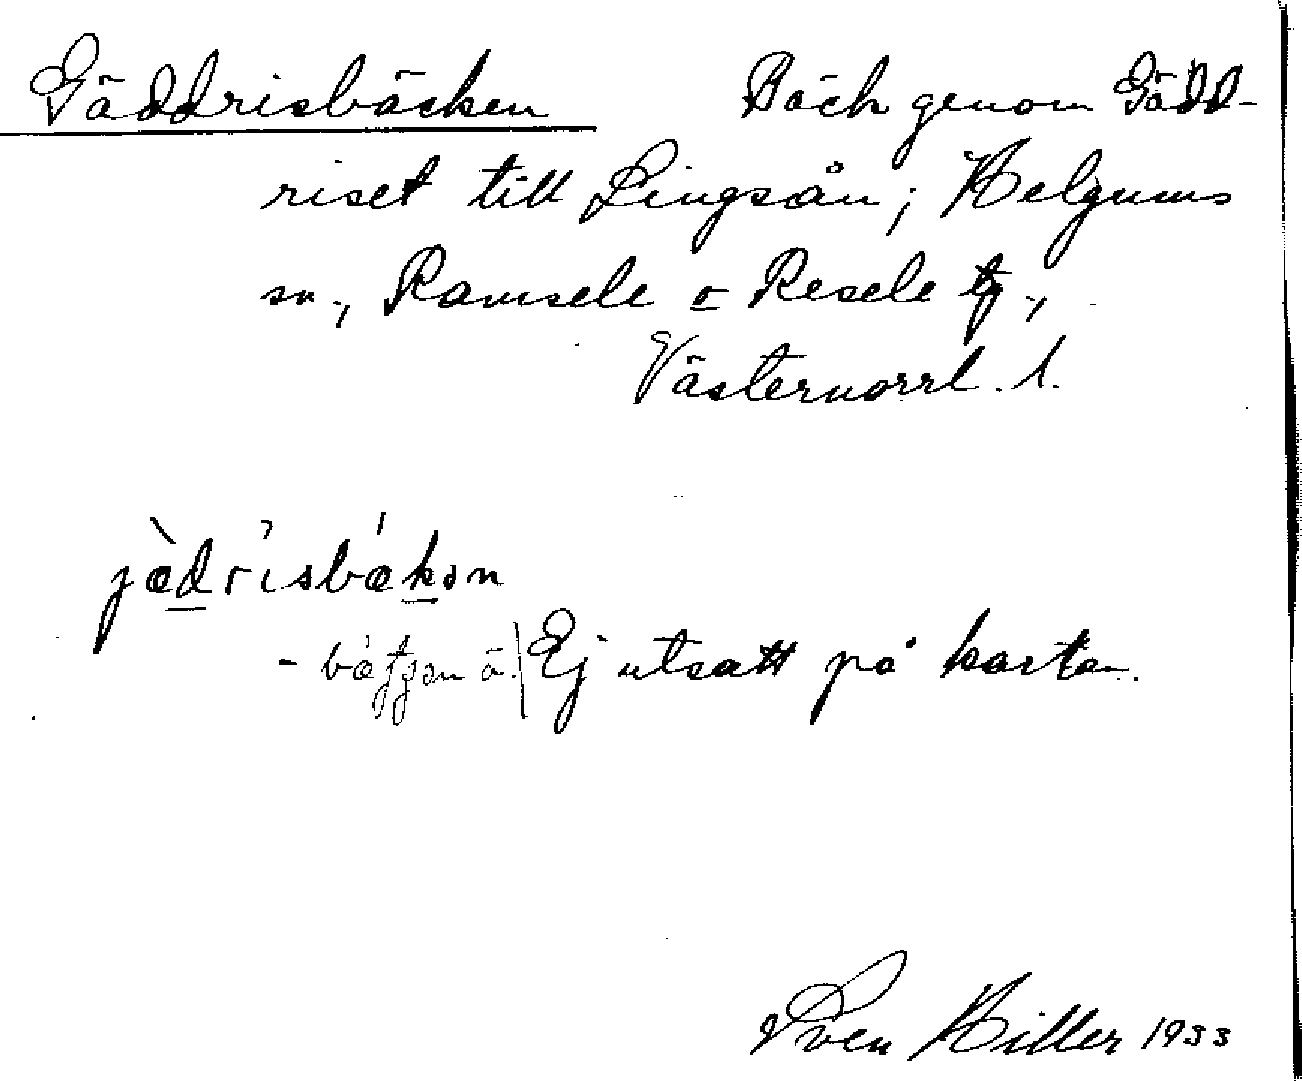 Gäddrisbäcken Bäck genom Gädd-
riset till Lingsån; Helgums
sn., Ramsele o Resele tg,
Västernorrl. l.
jæ̀drísbǽkən
- bætjən ä. Ej utsatt på kartan.
Sven Hiller 1933